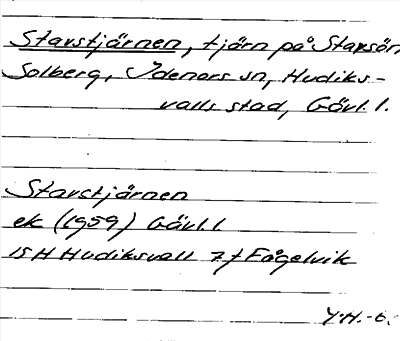 Starstjärnen, tjärn på Starsön
Solberg, Idenors sn, Hudiks-
valls stad, Gävl. l.
Starstjärnen
ek (1959) Gävl. l
15H Hudiksvall 7f Fågelvik
Y.H.-6.